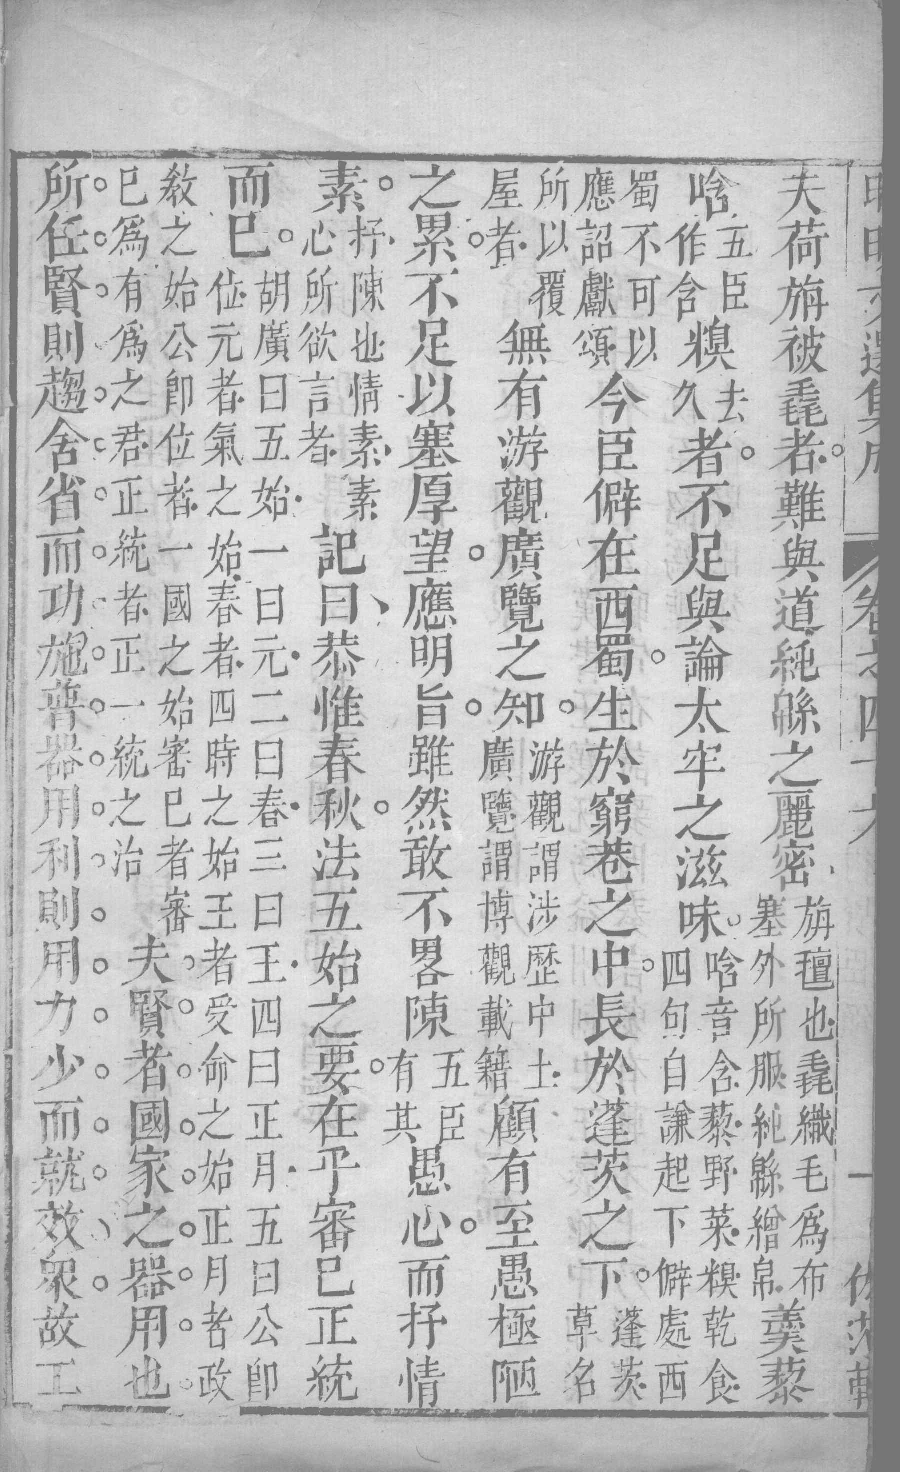 文選集成　卷之四十　一
夫荷旃被毳者難與道純緜之麗密旃氊也毳織毛爲布塞外所服純緜繒帛羹藜
唅五臣作含糗去久者不足與論太牢之滋味唅音含藜野菜糗乾食四句自謙起下僻處西
蜀不可以應詔獻頌今臣僻在西蜀生於窮巷之中長於蓬茨之下蓬茨草名
所以覆屋者無有游觀廣覽之知游觀謂涉歷中土廣覽謂博觀載籍顧有至愚極陋
之累不足以塞厚望應明旨雖然敢不畧陳五臣有其愚心而抒情
素抒陳也情素素心所欲言者記曰恭惟春秋法五始之要在乎審已正統
而已胡廣曰五始一曰元二曰春三曰王四曰正月五曰公卽位元者氣之始春者四時之始王者受命之始正月者政
教之始公卽位者一國之始審已者審已爲有爲之君正統者正一統之治夫賢者國家之器用也
所任賢則趨舍省而功施普器用利則用力少而就效衆故工